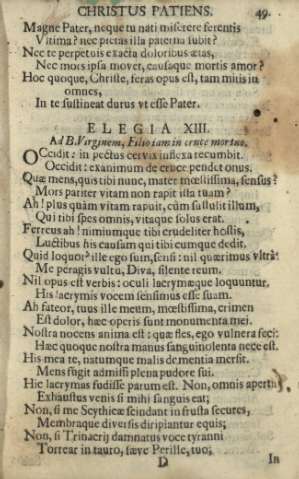 CHRISTUS PATIENS. 49.
Magne Pater, neque tu nati miserere ferentis
Vltima? nec pietas illa paterna subit?
Nec te perpetuis exacta doloribus ætas,
Nec mors ipsa movet, causaque mortis amor?
Hoc quoque, Christe, feras opus est, tam mitis in
omnes,
In te sustineat durus vt esse Pater.
ELEGIA XIII.
Ad B. Virginem, Filio iam in cruce mortuo.
OCcidit: in pectus cervix inflexa recumbit.
Occidit: exanimum de cruce pendet onus.
Quæ mens, quis tibi nunc, mater mœstissima, sensus?
Mors pariter vitam non rapit ista tuam?
Ah! plus quàm vitam rapuit, cùm sustulit illum,
Qui tibi spes omnis, vitaque solus erat.
Ferreus ah! nimiumque tibi crudeliter hostis,
Luctibus his causam qui tibi cumque dedit.
Quid loquor? ille ego sum, sensi: nil quærimus vltrà:
Me peragis vultu, Diva, silente reum.
Nil opus est verbis: oculi lacrymæque loquuntur,
His lacrymis vocem sensimus esse suam.
Ah fateor, tuus ille meum, mœstissima, crimen
Est dolor, hæc operis sunt monumenta mei.
Nostra nocens anima est: quæ fles, ego vulnera feci:
Hæc quoque nostra manus sanguinolenta nece est.
His mea te, natumque malis dementia mersit.
Mens fugit admissi plena pudore sui.
Hic lacrymas fudisse parum est. Non, omnis aperta
Exhaustus venis si mihi sanguis eat;
Non, si me Scythicæ scindant in frusta secures,
Membraque diversis diripiantur equis;
Non, si Trinacrij damnatus voce tyranni
Torrear in tauro, sæve Perille, tuo;
D In